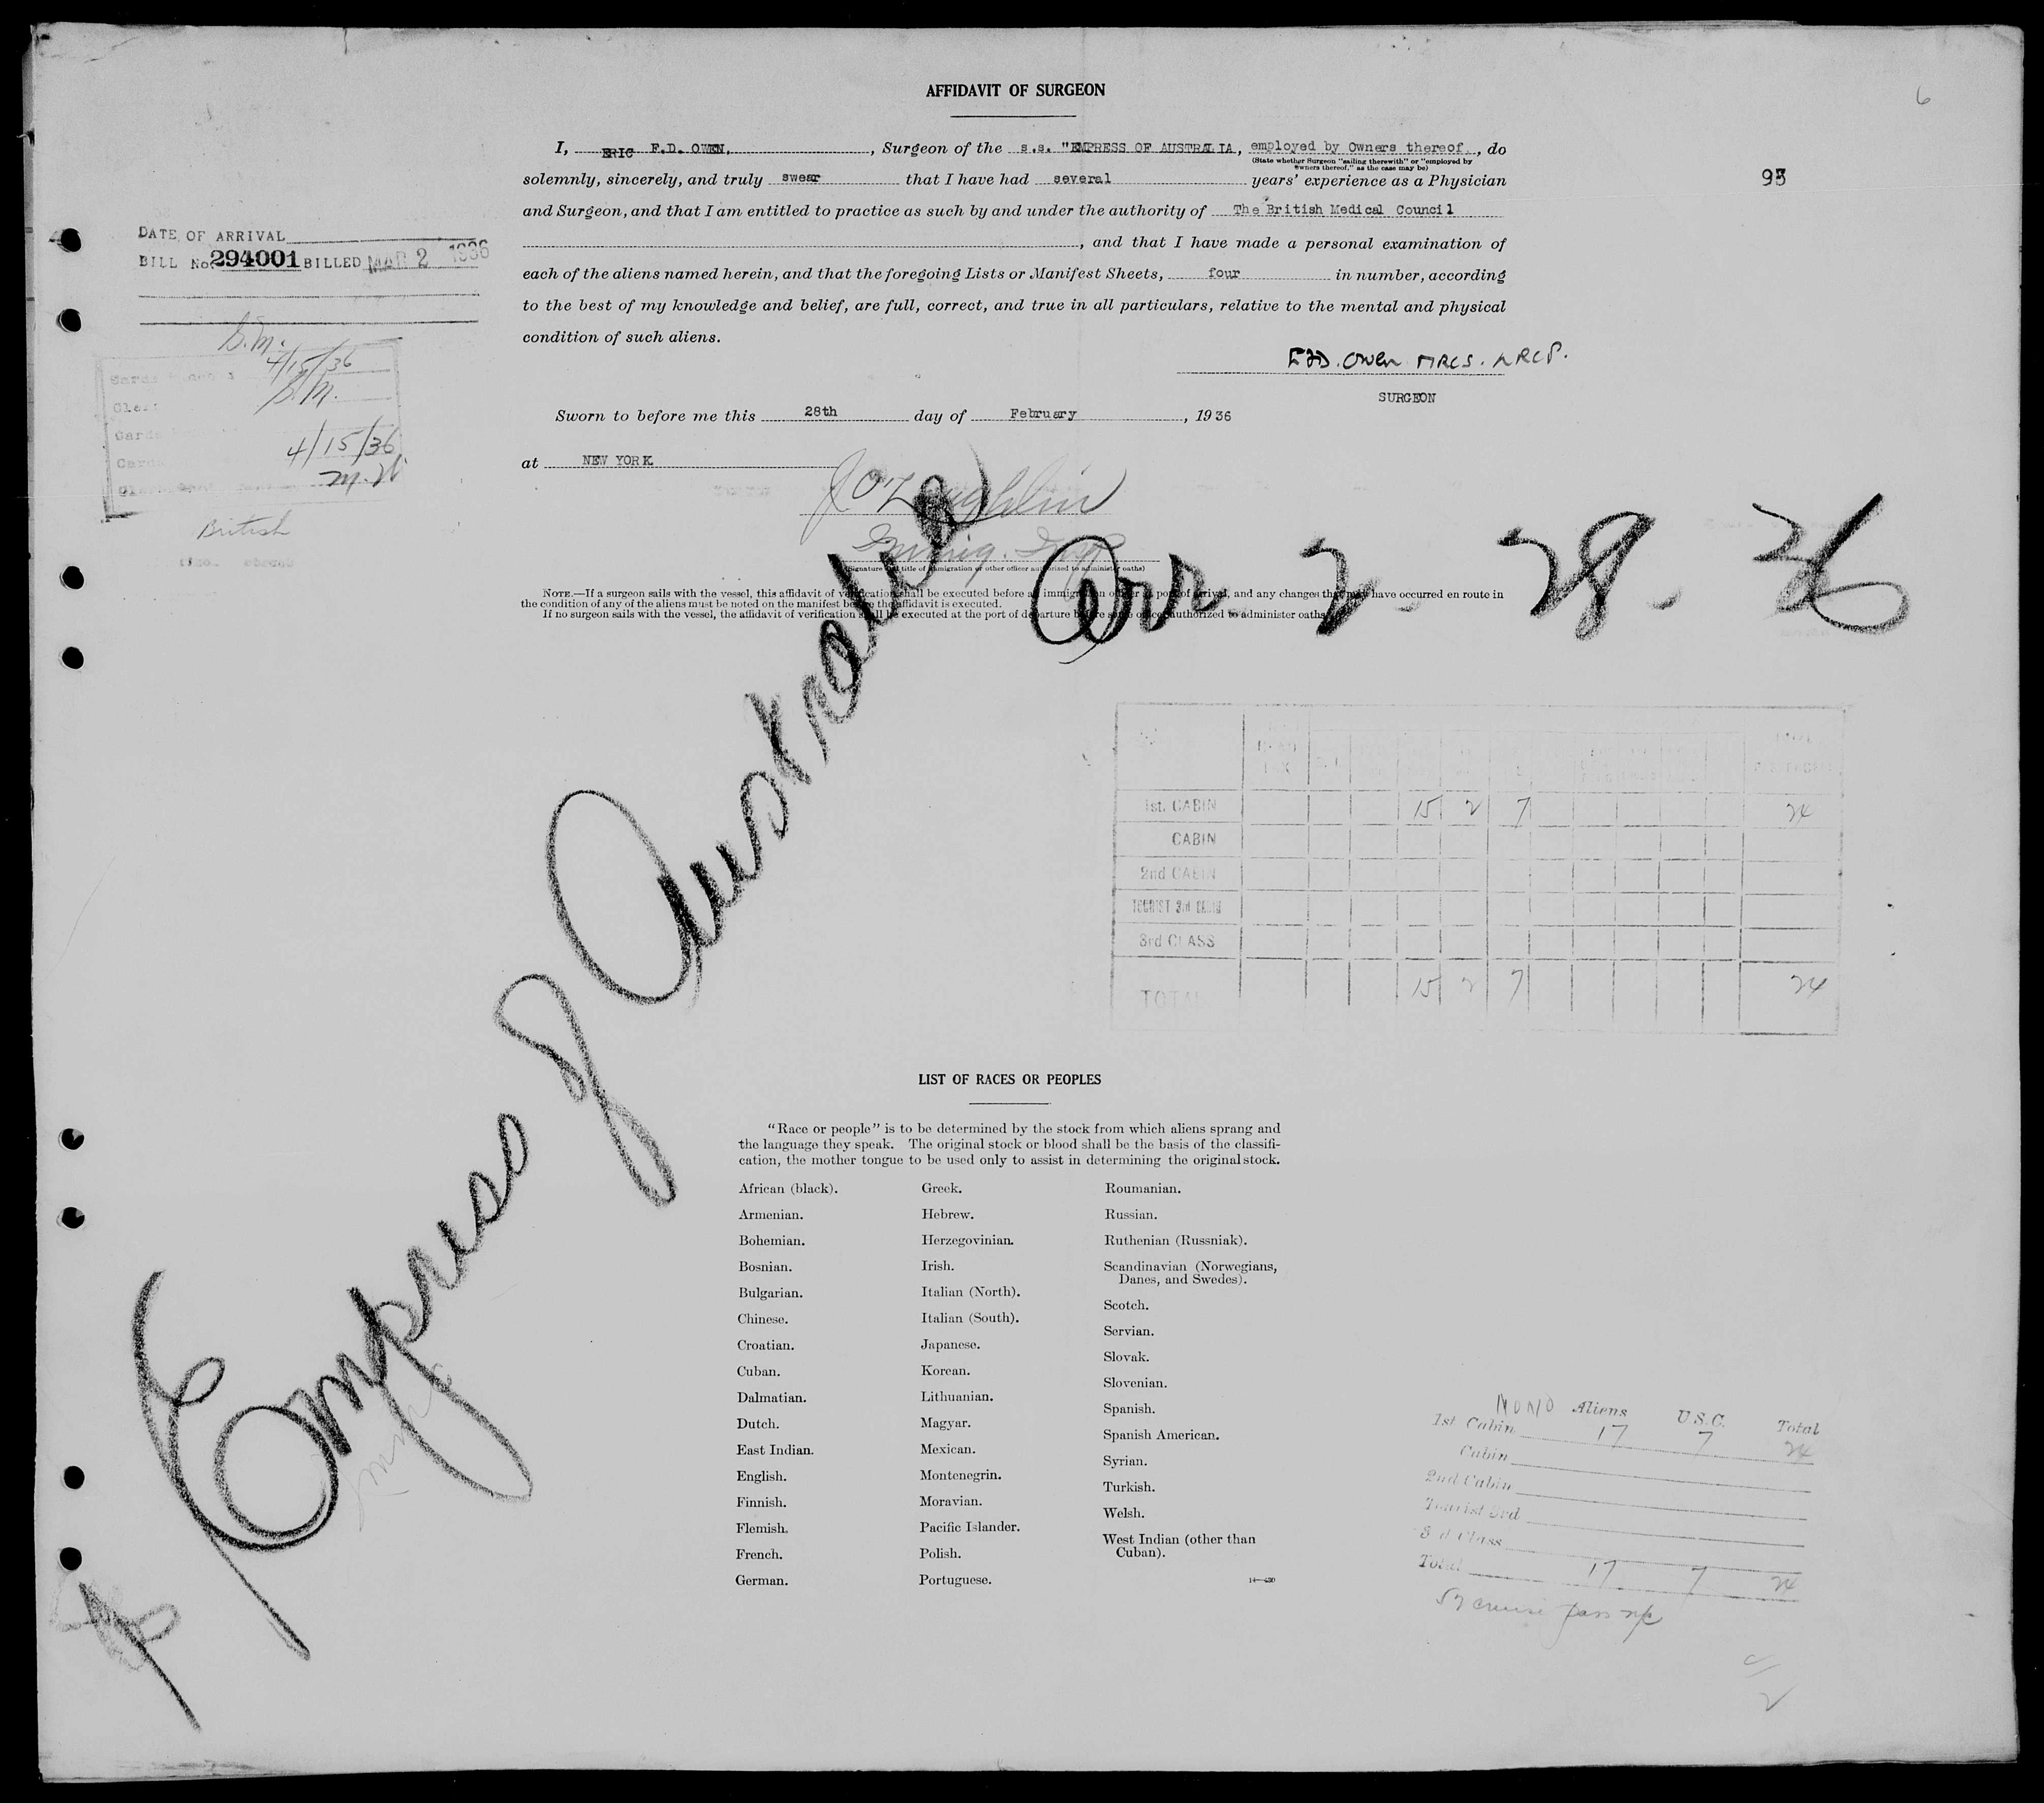 AFFIDAVIT OF SURGEON
6
I, ERIC F.D. OWEN, , Surgeon of the s.s. "EMPRESS OF AUSTRALIA, employed by Owners thereof , do
(State whether Surgeon "sailing therewith" or "employed by
owners thereof," as the case may be)
solemnly, sincerely, and truly swear that I have had several years' experience as a Physician
95
and Surgeon, and that I am entitled to practice as such by and under the authority of The British Medical Council
, and that I have made a personal examination of
each of the aliens named herein, and that the foregoing Lists or Manifest Sheets, four in number, according
to the best of my knowledge and belief, are full, correct, and true in all particulars, relative to the mental and physical
condition of such aliens.
DATE OF ARRIVAL
BILL No. 294001 BILLED MAR 2 1936
S.M.
4/15/36
S.M.
4/15/36
British
E.F.D. Owen MRCS. LRCP.
SURGEON
Sworn to before me this 28th day of February , 1936
at NEW YORK
J O'Loughlin
Immig. Insp
(Signature and title of immigration or other officer authorised to administer oaths)
NOTE.—If a surgeon sails with the vessel, this affidavit of verification shall be executed before an immigration officer at port of arrival, and any changes that may have occurred en route in
the condition of any of the aliens must be noted on the manifest before the affidavit is executed.
If no surgeon sails with the vessel, the affidavit of verification shall be executed at the port of departure before some officer authorized to administer oaths.
Arr. 2 - 28 - 36
Empress of Australia
1st. CABIN 15 2 7 24
CABIN
2nd CABIN
TOURIST 3rd CABIN
3rd CLASS
TOTAL 15 2 7 24
LIST OF RACES OR PEOPLES
"Race or people" is to be determined by the stock from which aliens sprang and
the language they speak. The original stock or blood shall be the basis of the classifi-
cation, the mother tongue to be used only to assist in determining the original stock.
African (black).
Armenian.
Bohemian.
Bosnian.
Bulgarian.
Chinese.
Croatian.
Cuban.
Dalmatian.
Dutch.
East Indian.
English.
Finnish.
Flemish.
French.
German.
Greek.
Hebrew.
Herzegovinian.
Irish.
Italian (North).
Italian (South).
Japanese.
Korean.
Lithuanian.
Magyar.
Mexican.
Montenegrin.
Moravian.
Pacific Islander.
Polish.
Portuguese.
Roumanian.
Russian.
Ruthenian (Russniak).
Scandinavian (Norwegians,
Danes, and Swedes).
Scotch.
Servian.
Slovak.
Slovenian.
Spanish.
Spanish American.
Syrian.
Turkish.
Welsh.
West Indian (other than
Cuban).
Aliens U.S.C. Total
1st Cabin 17 7 24
Cabin
2nd Cabin
Tourist 3rd
3rd Class
Total 17 7 24